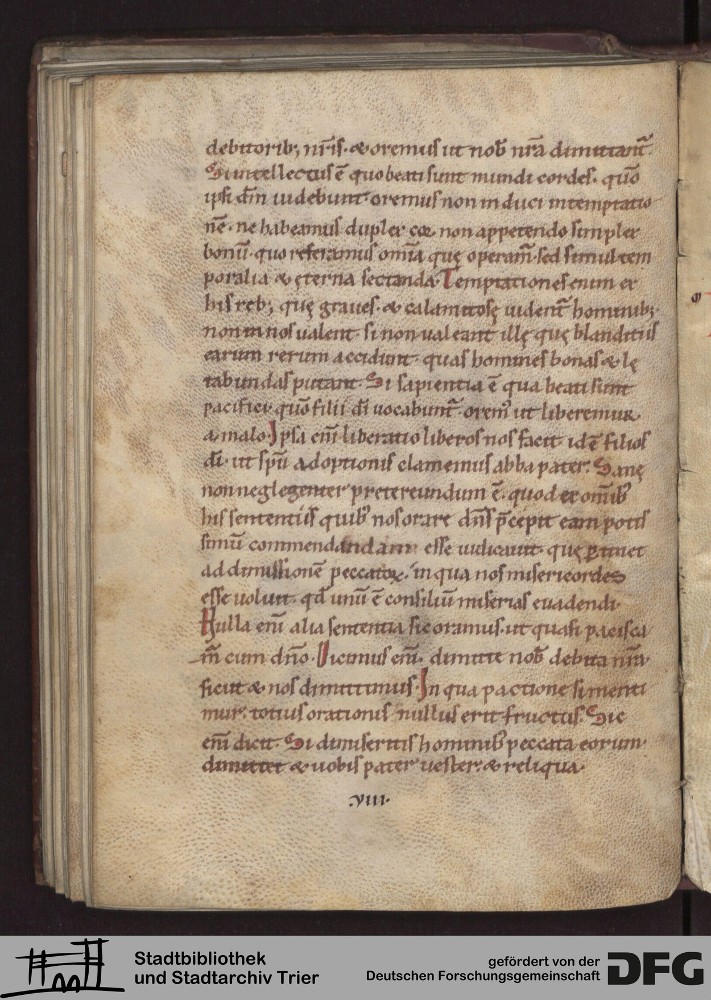 debitorib; nr̄is. & oremus ut nob̄ nr̄a dimittant̄.
Si intellectus ē quo beati sunt mundi cordes. quō
ipsi dm̄ uidebunt. oremus non induci in temptatio
nē. ne habeamus duplex cor. non appetendo simplex
bonū. quo referamus omīa quę operam̄. sed simul tem
poralia & ęterna sectanda. Temptationes enim ex
his reb; quę graues. & calamitosę uident̄ hominib;
non in nos ualent. si non ualeant illę quę blanditiis
earum rerum accidunt. quas homines bonas & lę
tabundas putant. Si sapientia ē qua beati sunt
pacifici. quō filii di̅ uocabunt̄. orem; ut liberemur
a malo. Ipsa eni̅ liberatio liberos nos facit. id ē filios
di̅. ut spū adoptionis clamemus abba pater. Sanę
non neglegenter pretereundum ē. quod ex omīb;
his sententiis quib; nos orare dn̄s p̄cepit eam potis
simū commendandam esse iudicauit. quę ꝑtinet
ad dimissionē peccatoꝝ. in qua nos misericordes
esse uoluit. qd̄ unū ē consiliū miserias euadendi.
Nulla eni̅ alia sententia sic oramus. ut quasi pacisca
m̄ cum dn̄o. Dicimus eni̅. dimitte nob̄ debita nr̄a
sicut & nos dimittimus. In qua pactione si menti
mur. totius orationis nullus erit fructus. Sic
eni̅ dicit. Si dimiseritis hominib; peccata eorum.
dimittet & uobis pater uester. & reliqua.
.VIII.
Stadtbibliothek
und Stadtarchiv Trier
gefördert von der
Deutschen Forschungsgemeinschaft
DFG